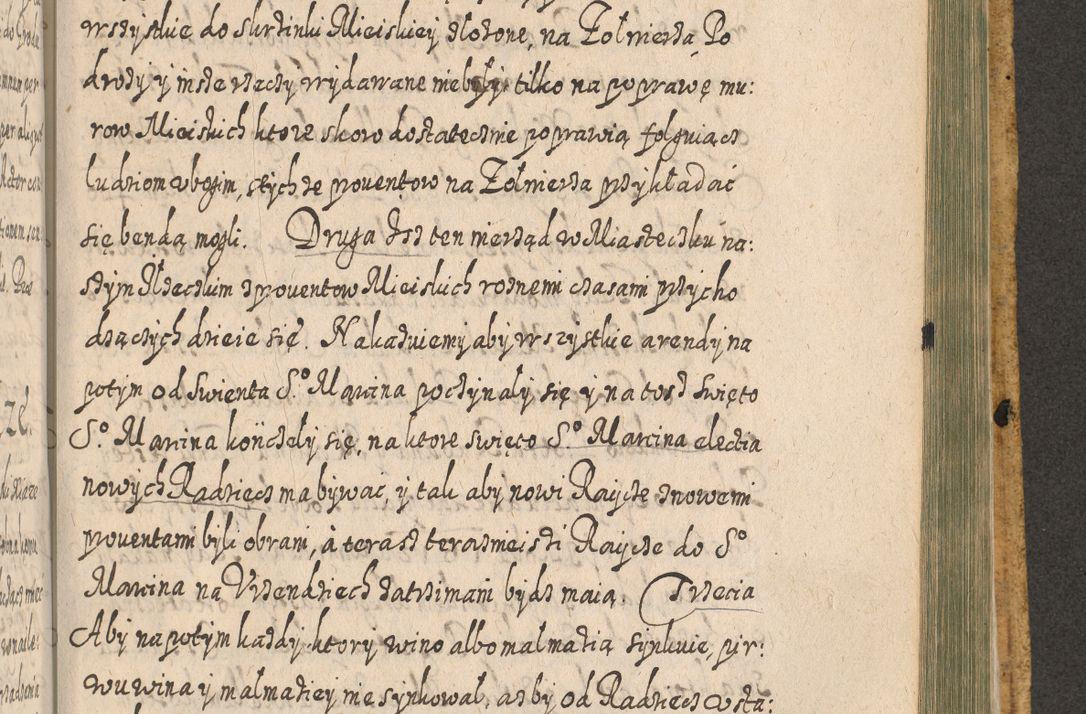 wszystkie do skrzinki Mieiskiey złożone, na Żołnierza Po
drozy y insze rzeczy wydawane nie były tilko na poprawę mu:
row Mieiskich ktore skoro dostatecznie poprawią folguiącz
ludziom vbogim, stych ze prouentow na Żołnierza przykładać
się bendą mogli. Druga Isz ten nierząd w Miasteczku na:
szym Iłzeczkim z prouentow Mieiskich roznemi czasami przycho
dzączych dzieie się. Nakazuiemy aby wszystkie arendy na
potym od Swienta S.º Marcina poczynały się y na tosz Swięto
S.º Marcina kończeły się, na ktore swięto S.º Marcina electia
nowych Radziecz ma bywac, y tak aby nowi Raycze z nowemi
prouentami byli obrani, à terasz terazneiszi Raycze do Sº
Marcina na Vrzendziech zatrzimani bydz maią. Trzecia
Aby na potym kazdy ktory wino albo malmazią synkuie, pir:
wu wina y malmaziey nie synkował, asby od Radziecz vsta: